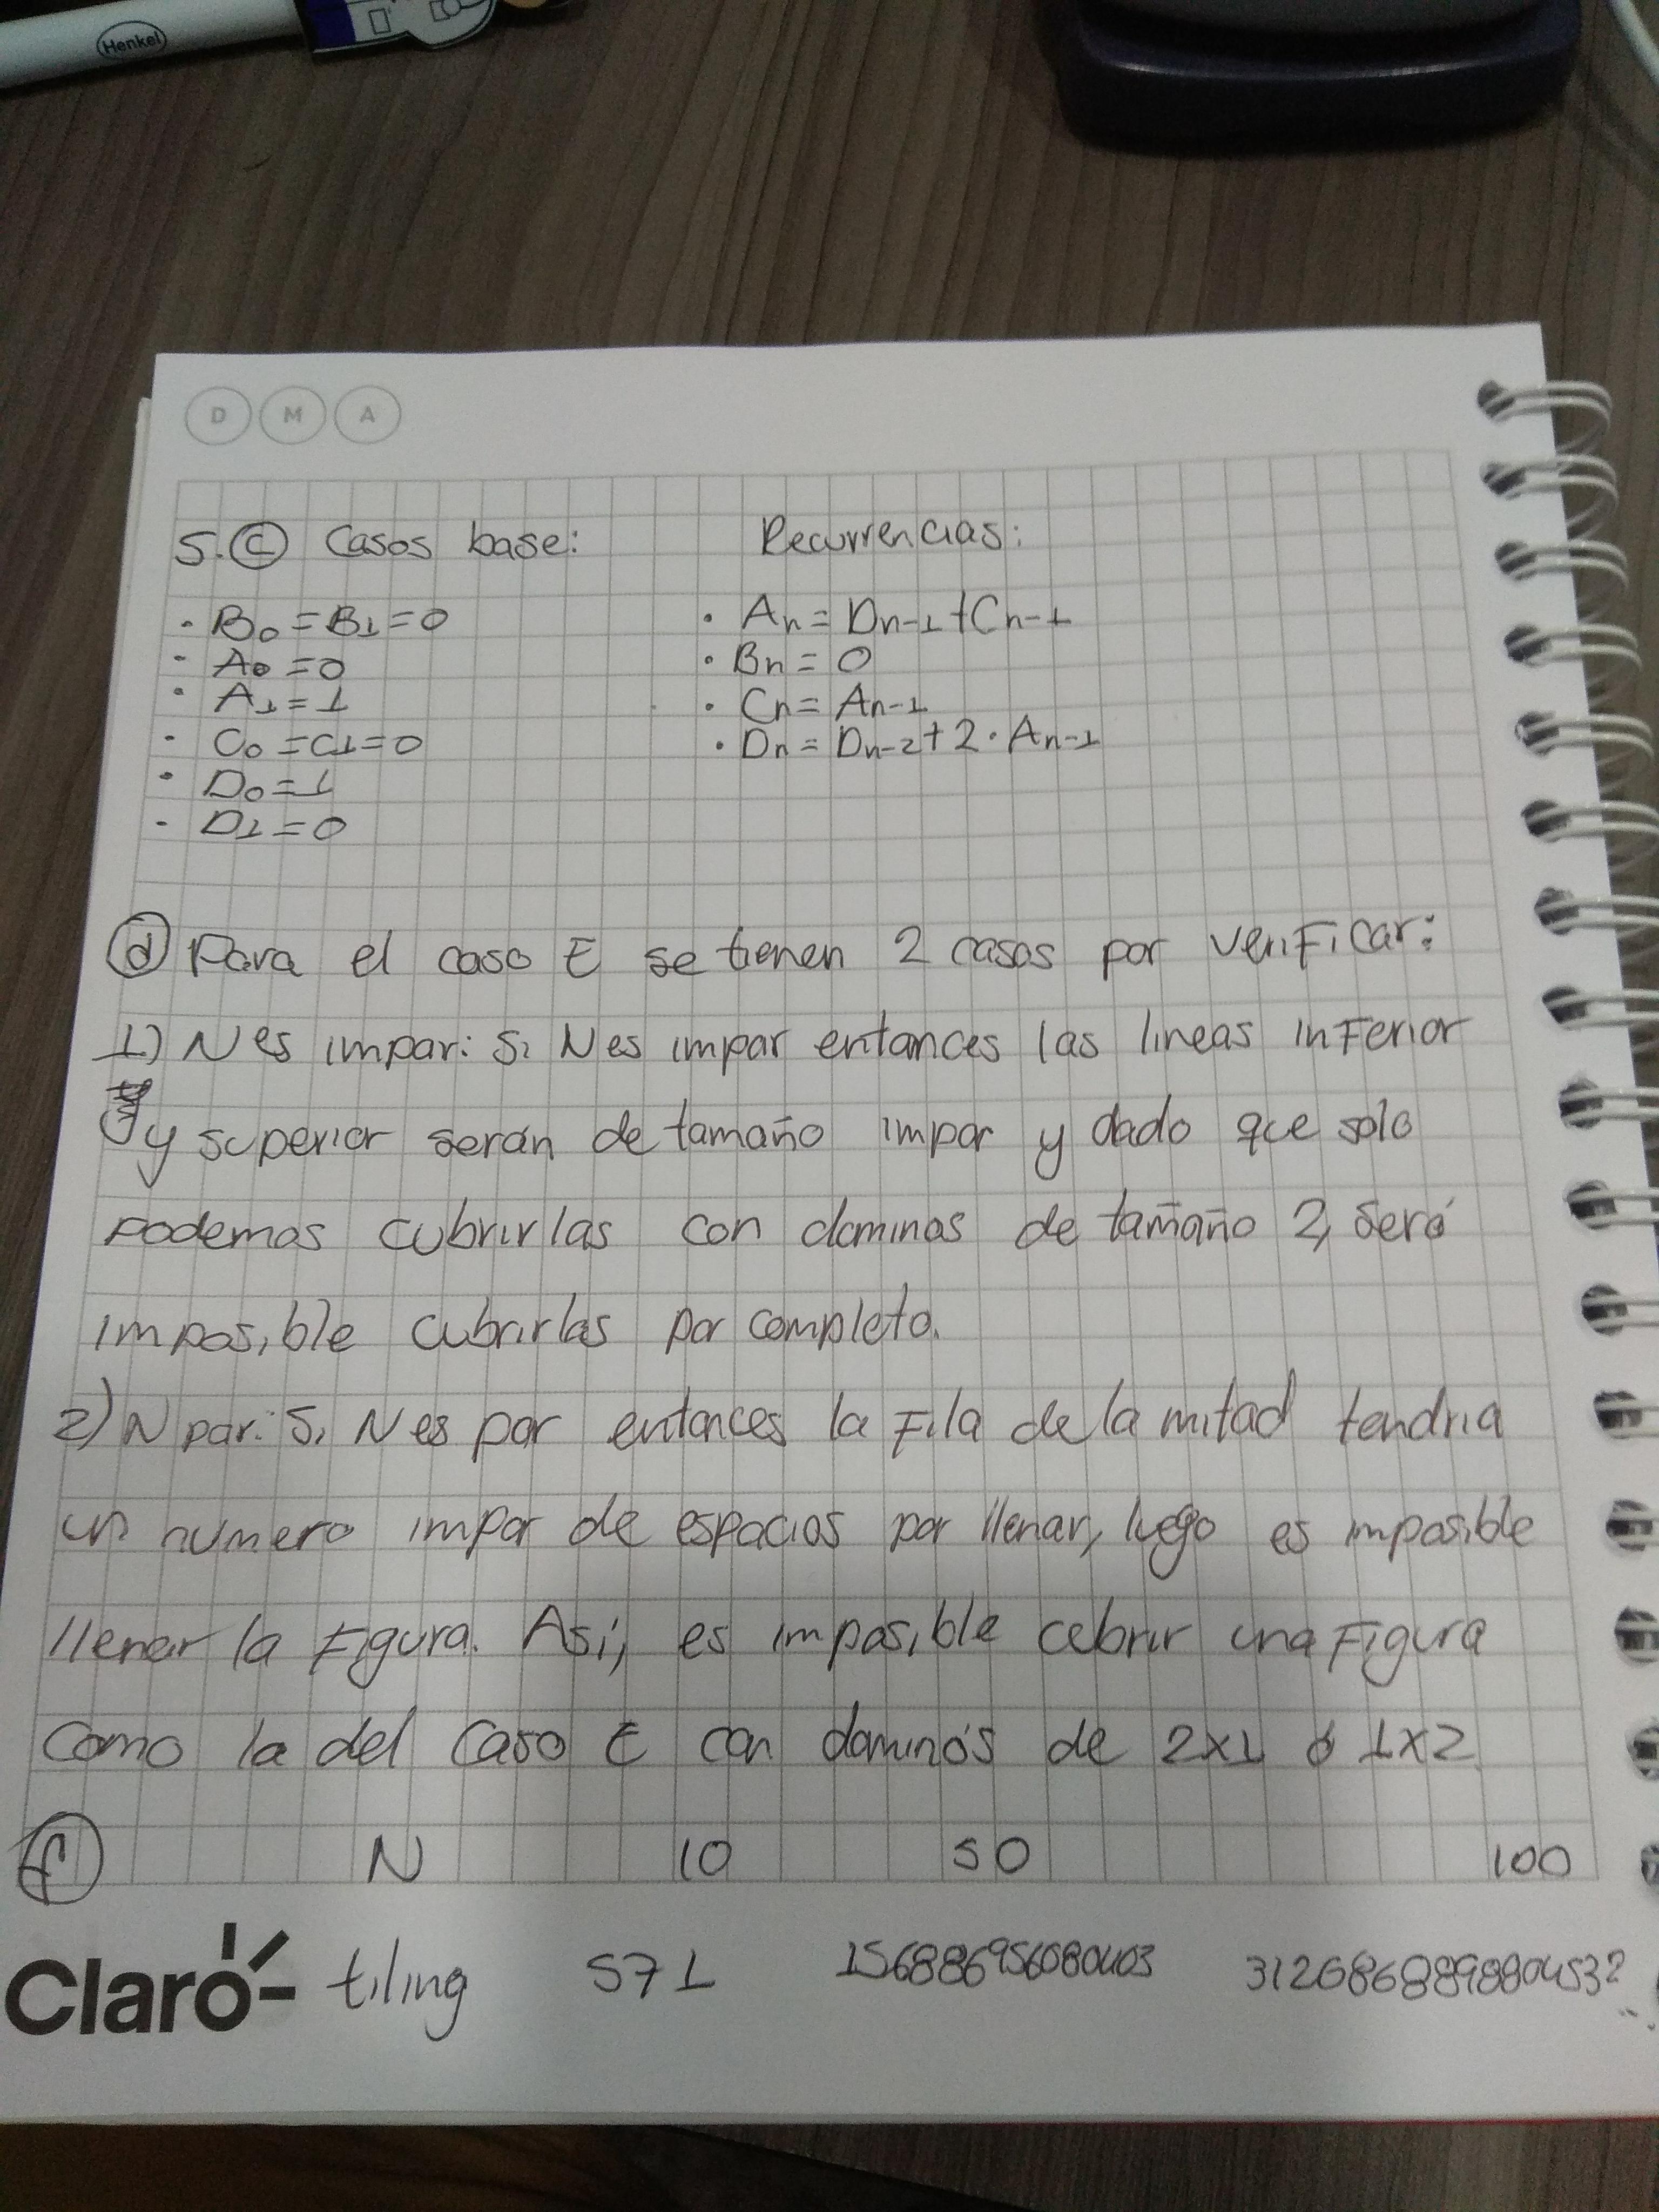 Henkel
D M A
5. c Casos base: Recurrencias:
· B0 = B1 = 0 · An = Dn-1 + Cn-1
- A0 = 0 · Bn = 0
· A1 = 1 · Cn = An-1
- C0 = C1 = 0 · Dn = Dn-2 + 2 · An-1
· D0 = 1
- D1 = 0
d Para el caso E se tienen 2 casos por verificar:
1) N es impar: Si N es impar entonces las lineas inferior
y superior serán de tamaño impar y dado que solo
podemos cubrirlas con dominos de tamaño 2, será
imposible cubrirlas por completo.
2) N par: Si N es par entonces la fila de la mitad tendria
un numero impar de espacios por llenar, luego es imposible
llenar la figura. Así, es imposible cubrir una figura
como la del caso E con dominós de 2x1 ó 1x2
f N 10 50 100
Claro- tiling 571 156886956080403